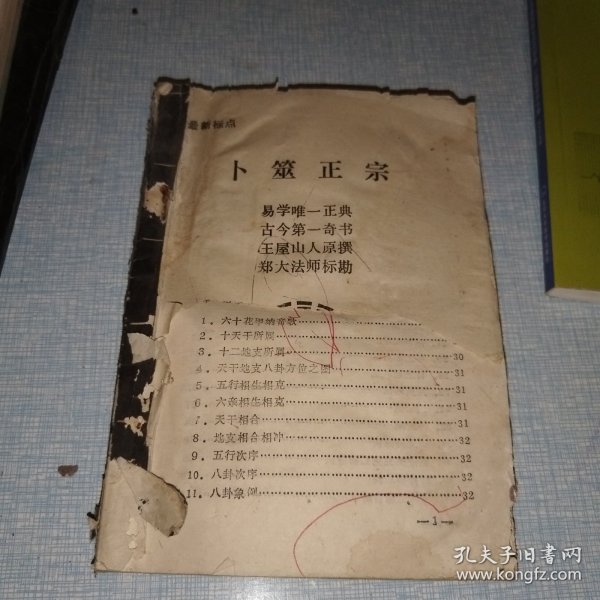 最新标点
卜筮正宗
易学唯一正典
古今第一奇书
王屋山人原撰
郑大法师标勘
1．六十花甲纳音歌
2．十天干所属
3．十二地支所属 30
4．天干地支八卦方位之图 31
5．五行相生相克 31
6．六亲相生相克 31
7．天干相合 31
8．地支相合相冲 32
9．五行次序 32
10．八卦次序 32
11．八卦象例 32
—1—
孔夫子旧书网
www.kongfz.com